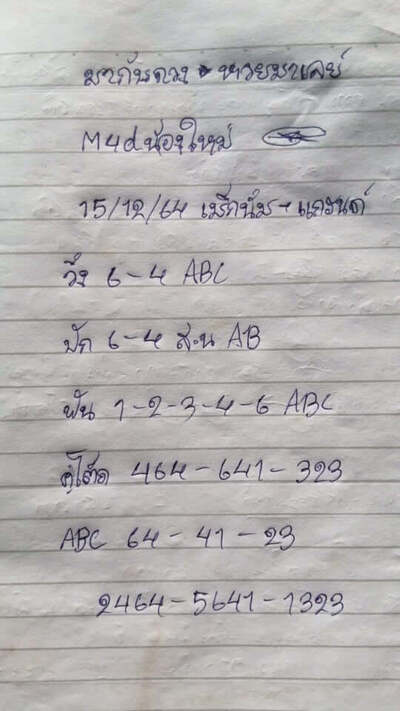 มากันดวง หวยมาเลย์
M4d น้องใหม่
15/12/64 เม็กนั่ม - แกรนด์
วิ่ง 6-4 ABC
ปัก 6-4 สิบ AB
ฟัน 1-2-3-4-6 ABC
464-641-323
ABC 64-41-23
2464-5641-1323